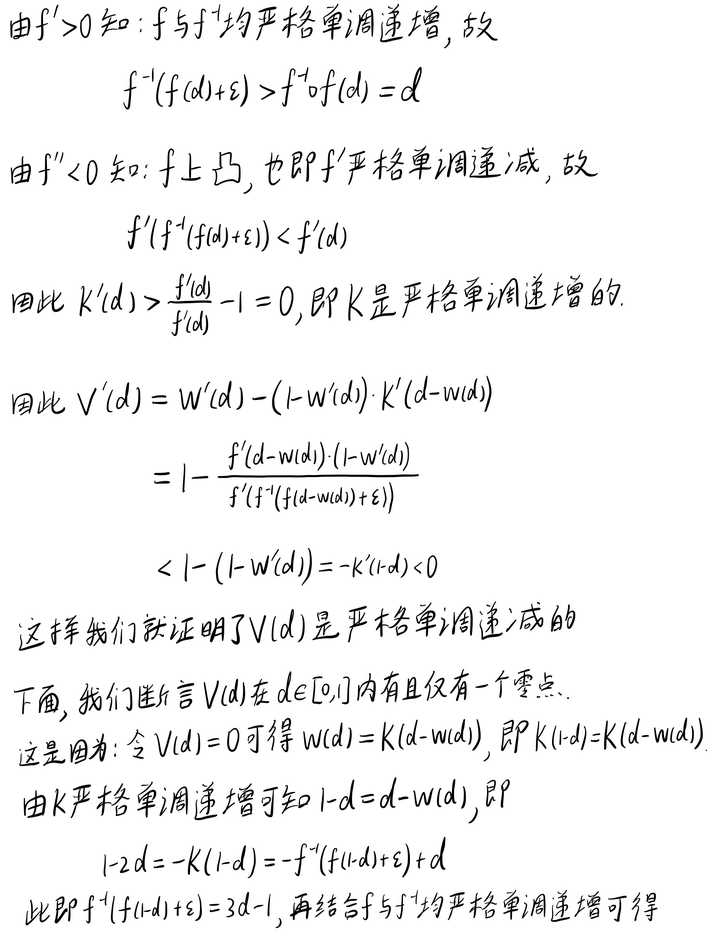 由f'>0知:f与f⁻¹均严格单调递增,故
f⁻¹(f(d)+ε)>f⁻¹∘f(d)=d
由f''<0知:f上凸,也即f'严格单调递减,故
f'(f⁻¹(f(d)+ε))<f'(d)
因此 K'(d)>f'(d)/f'(d)-1=0,即K是严格单调递增的.
因此 V'(d)=W'(d)-(1-W'(d))·K'(d-w(d))
=1-f'(d-w(d))·(1-w'(d))/f'(f⁻¹(f(d-w(d))+ε))
<1-(1-W'(d))=-K'(1-d)<0
这样我们就证明了V(d)是严格单调递减的
下面,我们断言V(d)在d∈[0,1]内有且仅有一个零点.
这是因为:令V(d)=0可得W(d)=K(d-w(d)),即K(1-d)=K(d-w(d)).
由K严格单调递增可知1-d=d-w(d),即
1-2d=-K(1-d)=-f⁻¹(f(1-d)+ε)+d
此即f⁻¹(f(1-d)+ε)=3d-1,再结合f与f⁻¹均严格单调递增可得